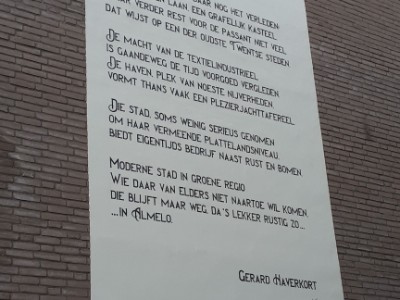 NOG HET VERLEDEN
LAAN, EEN GRAFELIJK KASTEEL
VERDER REST VOOR DE PASSANT NIET VEEL
DAT WIJST OP EEN DER OUDSTE TWENTSE STEDEN
DE MACHT VAN DE TEXTIELINDUSTRIEEL
IS GAANDEWEG DE TIJD VOORGOED VERGLEDEN
DE HAVEN, PLEK VAN NOESTE NIJVERHEDEN
VORMT THANS VAAK EEN PLEZIERJACHTTAFEREEL
DIE STAD, SOMS WEINIG SERIEUS GENOMEN
OM HAAR VERMEENDE PLATTELANDSNIVEAU
BIEDT EIGENTIJDS BEDRIJF NAAST RUST EN BOMEN.
MODERNE STAD IN GROENE REGIO
WIE DAAR VAN ELDERS NIET NAARTOE WIL KOMEN,
DIE BLIJFT MAAR WEG. DA'S LEKKER RUSTIG ZO...
...IN ALMELO.
GERARD HAVERKORT